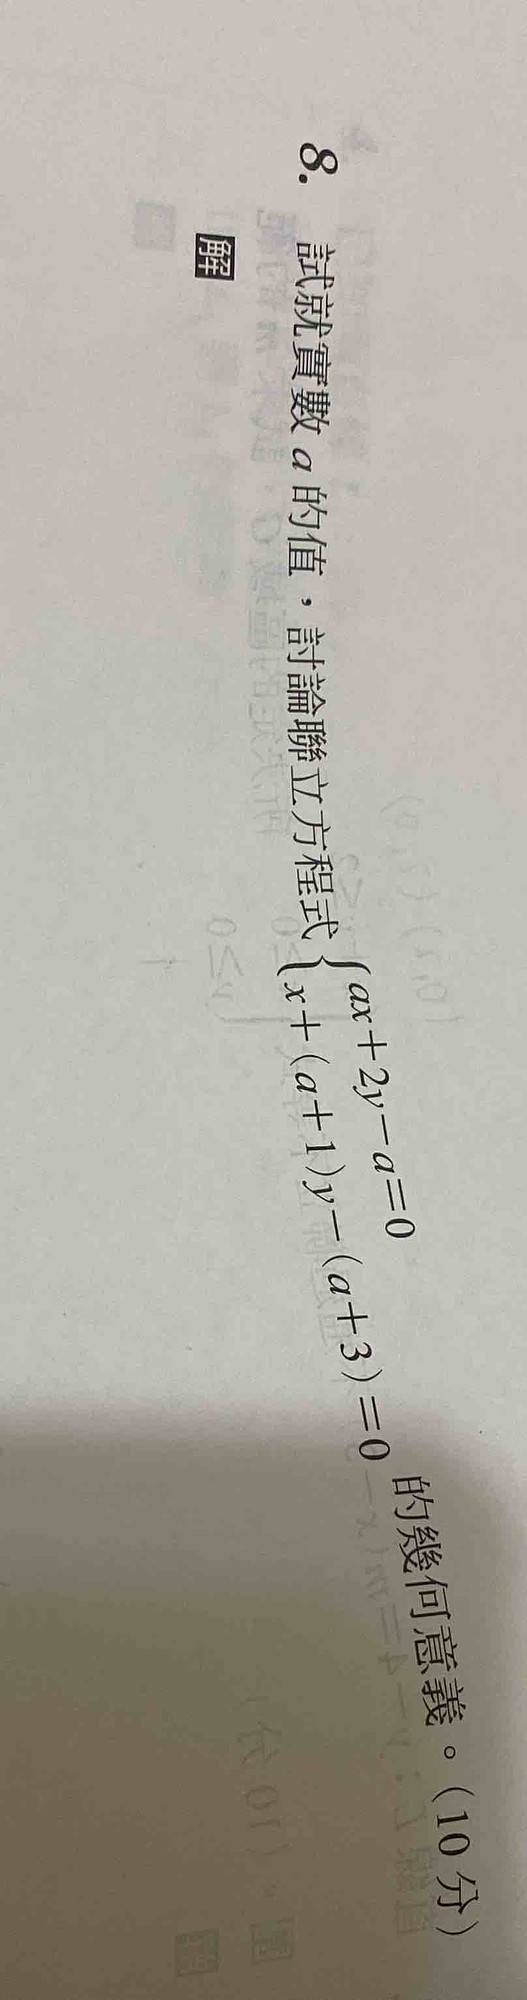 8. 試就實數 a 的值，討論聯立方程式 { ax+2y-a=0
x+(a+1)y-(a+3)=0 的幾何意義。(10 分)
解